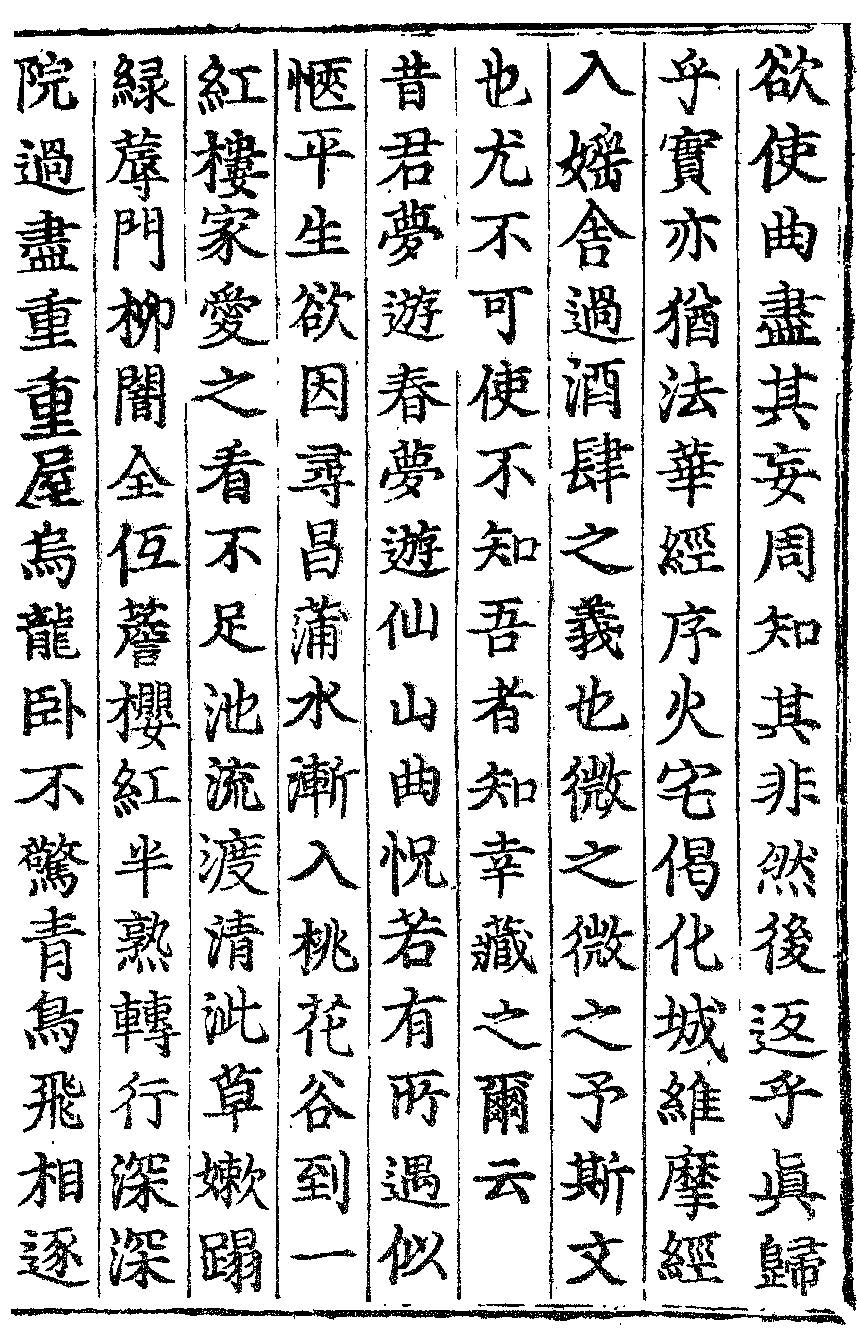 欲使曲盡其妄周知其非然後返乎眞歸
乎實亦猶法華經序火宅偈化城維摩經
入婬舍過酒肆之義也微之微之予斯文
也尤不可使不知吾者知幸藏之爾云
昔君夢遊春夢遊仙山曲怳若有所遇似
愜平生欲因尋昌蒲水漸入桃花谷到一
紅樓家愛之看不足池流渡清泚草嫩蹋
緑蓐門柳闇全伍薝櫻紅半熟轉行深深
院過盡重重屋烏龍卧不驚青鳥飛相逐